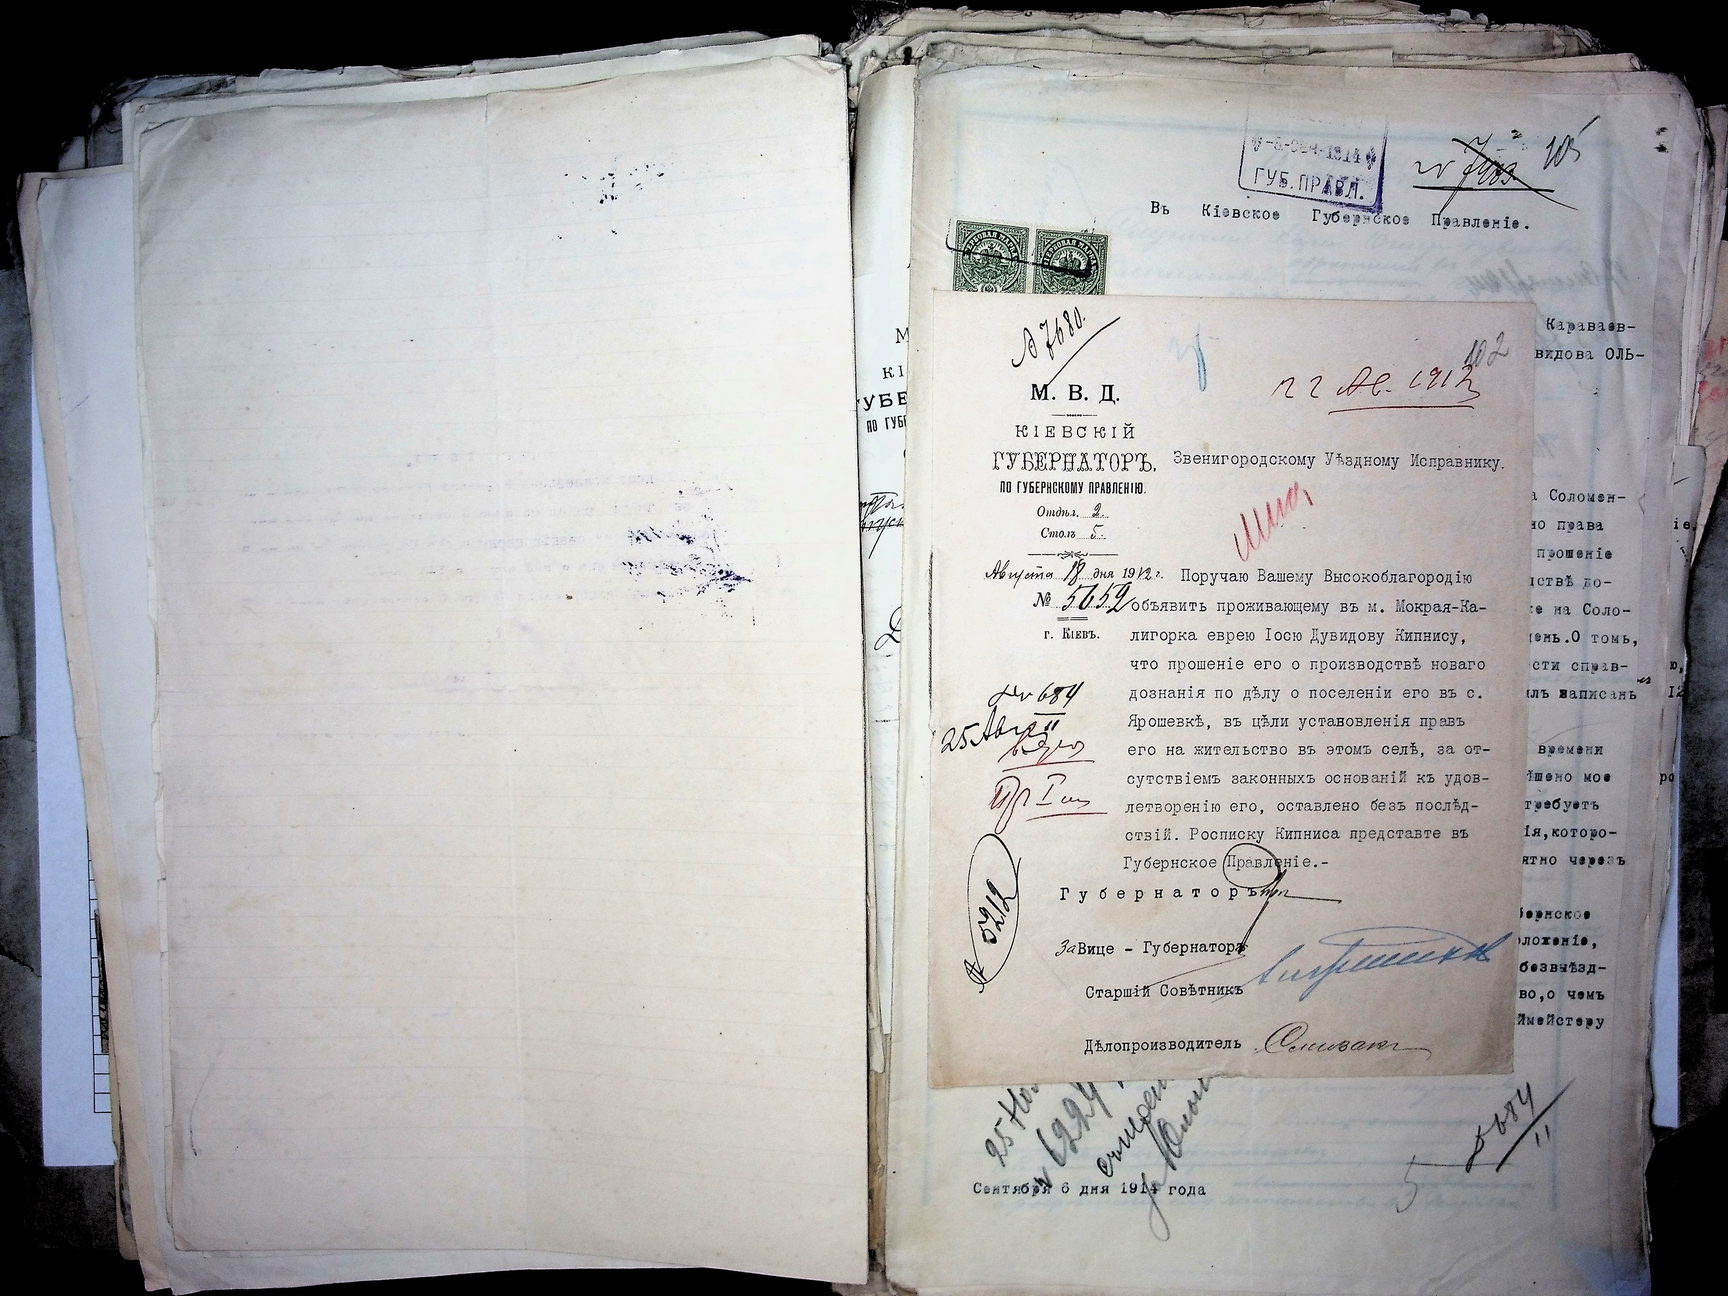 105
ГУБ. ПРАВЛ.
Въ Кіевское Губернское Правленіе.
Караваев-
видова ОЛЬ-
№ 7680.
102
М. В. Д.
22 Ав. 1912
КІЕВСКІЙ
ГУБЕРНАТОРЪ,
ПО ГУБЕРНСКОМУ ПРАВЛЕНІЮ.
Отдѣл. 2.
Столъ 5.
Августа 18 дня 1912 г.
№ 5659
г. Кіевъ.
Звенигородскому Уѣздному Исправнику.
Поручаю Вашему Высокоблагородію
объявить проживающему въ м. Мокрая-Ка-
лигорка еврею Іосю Дувидову Кипнису,
что прошеніе его о производствѣ новаго
дознанія по дѣлу о поселеніи его въ с.
Ярошевкѣ, въ цѣли установленія правъ
его на жительство въ этомъ селѣ, за от-
сутствіемъ законныхъ основаній къ удов-
летворенію его, оставлено безъ послѣд-
ствій. Росписку Кипниса представте въ
Губернское Правленіе.-
Губернаторъ
За Вице - Губернатора
Старшій Совѣтникъ
Дѣлопроизводитель
№ 684
25 Авг
№ 5212
а Соломен-
но права
прошеніе
на Соло-
О томъ,
сти справ-
написанъ
времени
мое
требуетъ
ія, которо-
ятно черезъ
бернское
оложеніе,
безвыѣзд-
во, о чемъ
ймейстеру
25
5684
11
5
Сентября 6 дня 1914 года